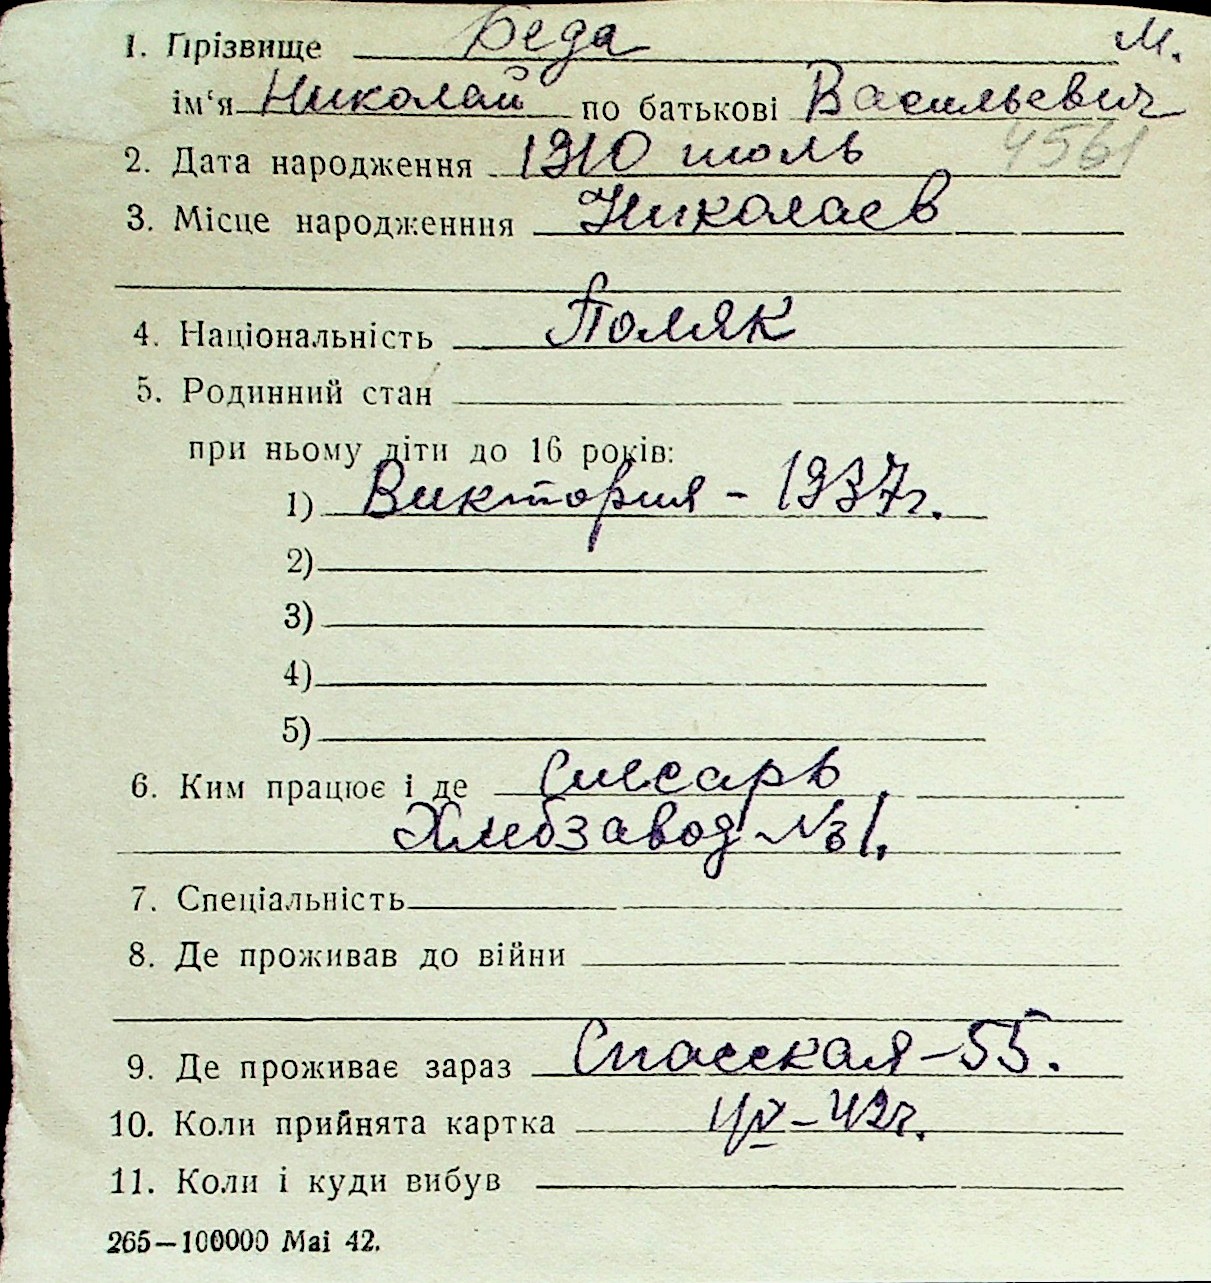 1. Прізвище Беда М.
ім‘я Николай по батькові Васильевич
4561
2. Дата народження 1910 июль
3. Місце народженння Николаев
4. Національність Поляк
5. Родинний стан
при ньому діти до 16 років:
1) Виктория - 1937г.
2)
3)
4)
5)
6. Ким працює і де Слесарь
Хлебзавод №1.
7. Спеціальність
8. Де проживав до війни
9. Де проживає зараз Спасская - 55.
10. Коли прийнята картка - 42г.
11. Коли і куди вибув
265—100000 Маі 42.